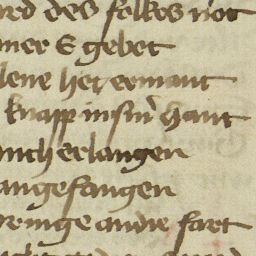 ard des folkes not
mer E gebet
lene het ermant
knapp in sinr hant
uch erlangen
angefangen
ringe an die fart